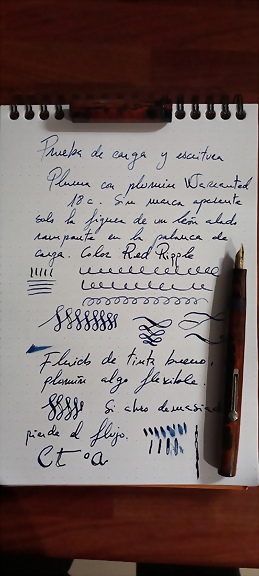 Prueba de carga y escritura
Pluma con plumín Warranted
18 c. Sin marca aparente
solo la figura de un león alado
rampante en la palanca de
carga. Color Red Ripple
Fluido de tinta bueno,
plumín algo flexible.
Si abro demasiad
pierde el flujo.